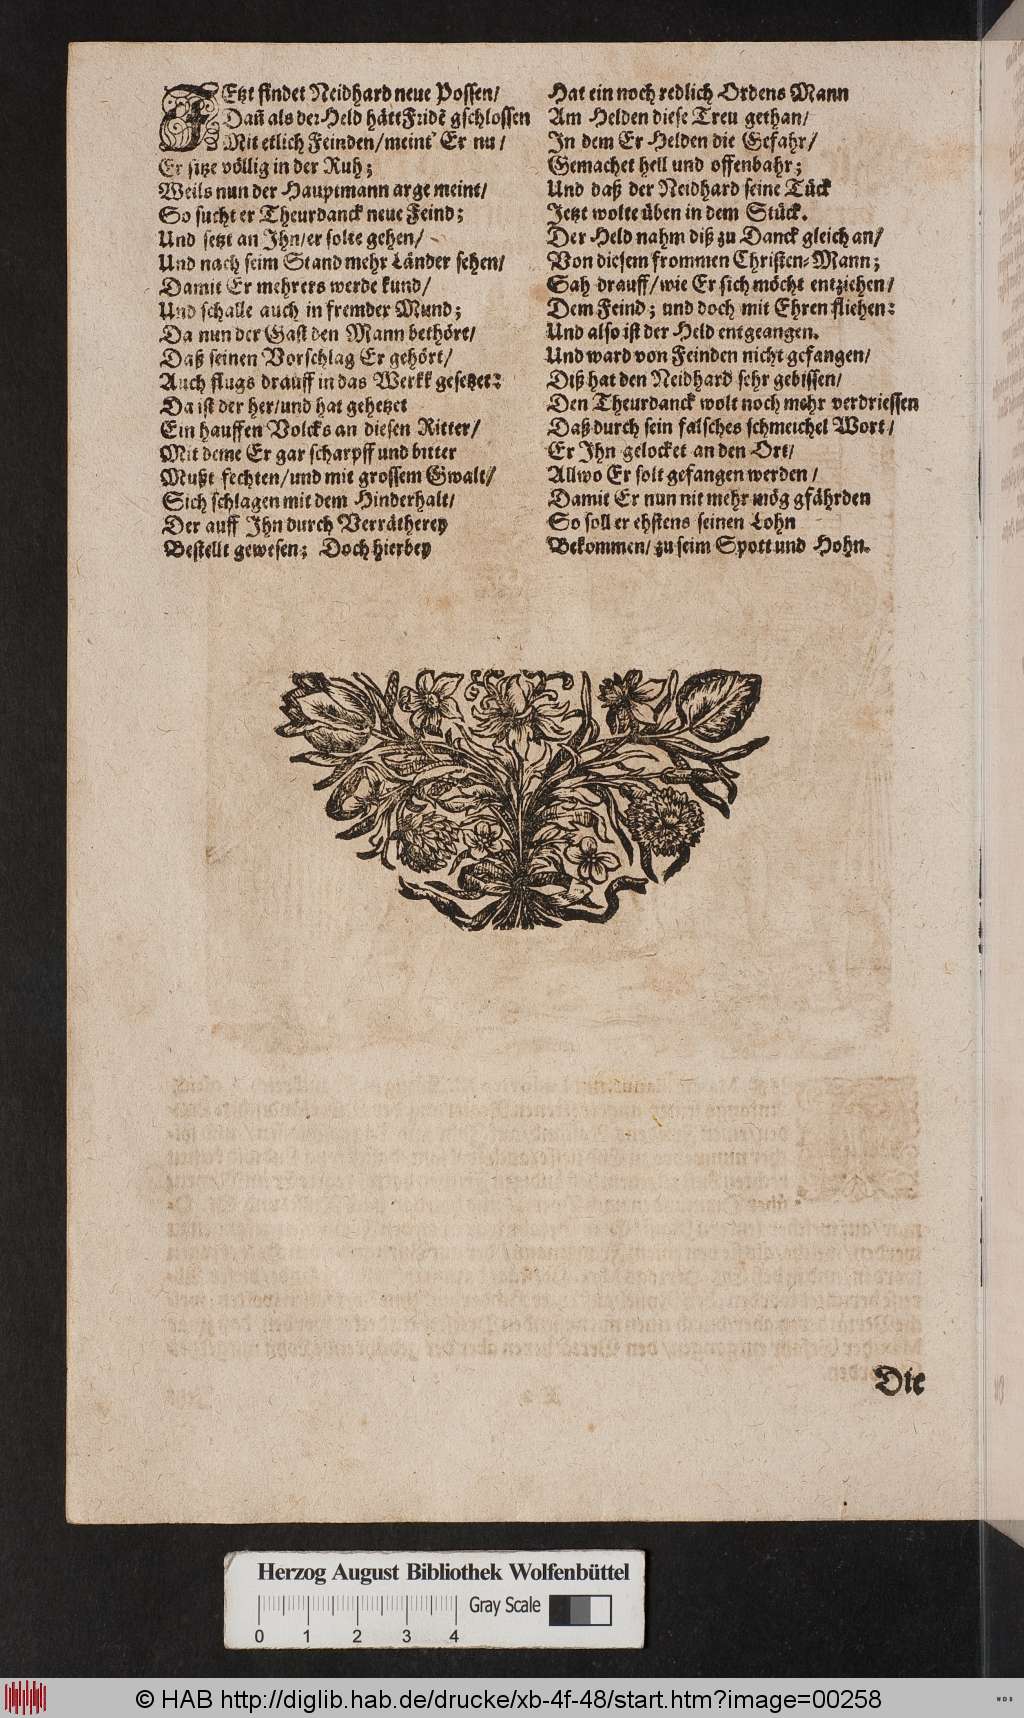 JEtzt findet Neidhard neue Possen/
Dañ als der Held hätt Fridẽ gschlossen
Mit etlich Feinden/meint Er nu/
Er sitze völlig in der Ruh;
Weils nun der Hauptmann arge meint/
So sucht er Theurdanck neue Feind;
Und setzt an Ihn/er solte gehen/
Und nach seim Stand mehr Länder sehen/
Damit Er mehrers werde kund/
Und schalle auch in fremder Mund;
Da nun der Gast den Mann bethört/
Daß seinen Vorschlag Er gehört/
Auch flugs drauff in das Werkk gesetzet:
Da ist der her/und hat gehetzet
Ein hauffen Volcks an diesen Ritter/
Mit deme Er gar scharpff und bitter
Mußt fechten/und mit grossem Gwalt/
Sich schlagen mit dem Hinderhalt/
Der auff Ihn durch Verrätherey
Bestellt gewesen; Doch hierbey
Hat ein noch redlich Ordens Mann
Am Helden diese Treu gethan/
In dem Er Helden die Gefahr/
Gemachet hell und offenbahr;
Und daß der Neidhard seine Tück
Jetzt wolte üben in dem Stück.
Der Held nahm diß zu Danck gleich an/
Von diesem frommen Christen-Mann;
Sah drauff/wie Er sich möcht entziehen/
Dem Feind; und doch mit Ehren fliehen:
Und also ist der Held entgeangen.
Und ward von Feinden nicht gefangen/
Diß hat den Neidhard sehr gebissen/
Den Theurdanck wolt noch mehr verdriessen
Daß durch sein falsches schmeichel Wort/
Er Ihn gelocket an den Ort/
Allwo Er solt gefangen werden/
Damit Er nun nit mehr mög gfährden
So soll er ehstens seinen Lohn
Bekommen/zu seim Spott und Hohn.
Die
Herzog August Bibliothek Wolfenbüttel
Gray Scale
0 1 2 3 4
© HAB http://diglib.hab.de/drucke/xb-4f-48/start.htm?image=00258